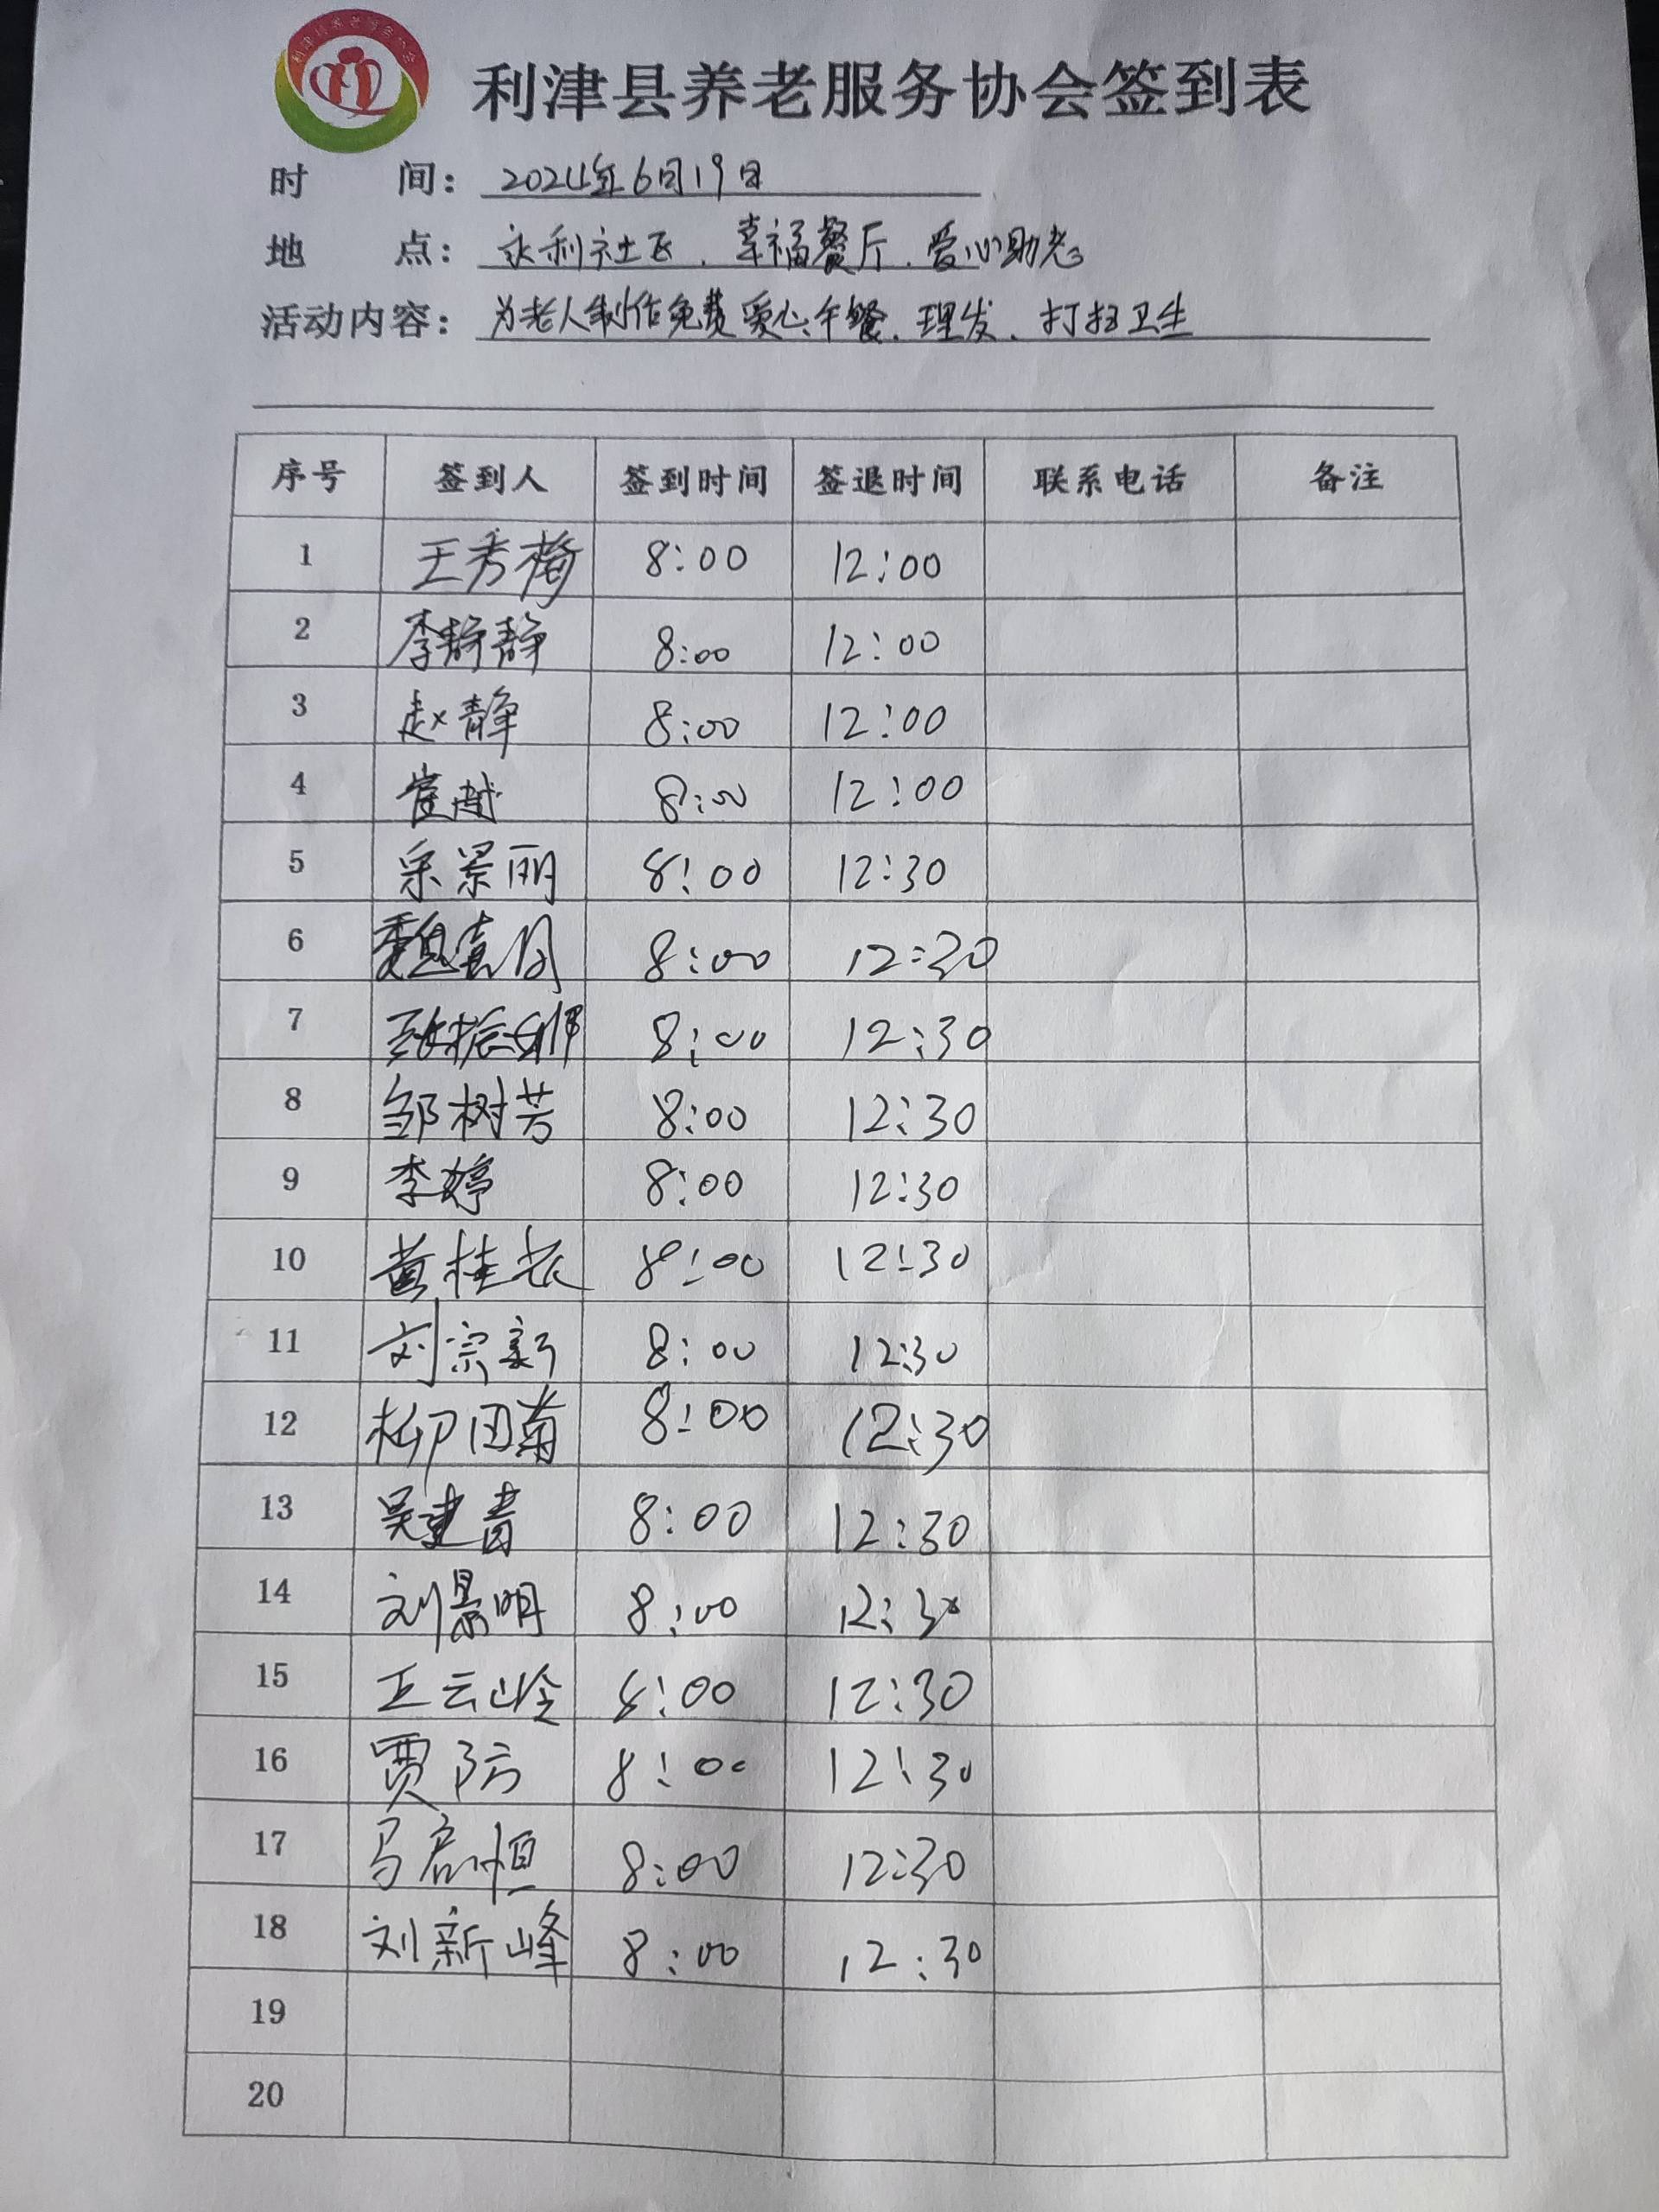 利津县养老服务协会签到表
时 间： 2024年6月19日
地 点： 永利社区、幸福餐厅、爱心助老
活动内容： 为老人制作免费爱心午餐、理发、打扫卫生
序号 签到人 签到时间 签退时间 联系电话 备注
1 王秀梅 8:00 12:00
2 李静静 8:00 12:00
3 赵静 8:00 12:00
4 崔越 8:00 12:00
5 宋景丽 8:00 12:30
6 魏喜月 8:00 12:30
7 8:00 12:30
8 邹树芳 8:00 12:30
9 李婷 8:00 12:30
10 黄桂农 8:00 12:30
11 刘宗新 8:00 12:30
12 柳田菊 8:00 12:30
13 吴建青 8:00 12:30
14 刘景明 8:00 12:30
15 王云岭 8:00 12:30
16 贾防 8:00 12:30
17 马启恒 8:00 12:30
18 刘新峰 8:00 12:30
19
20